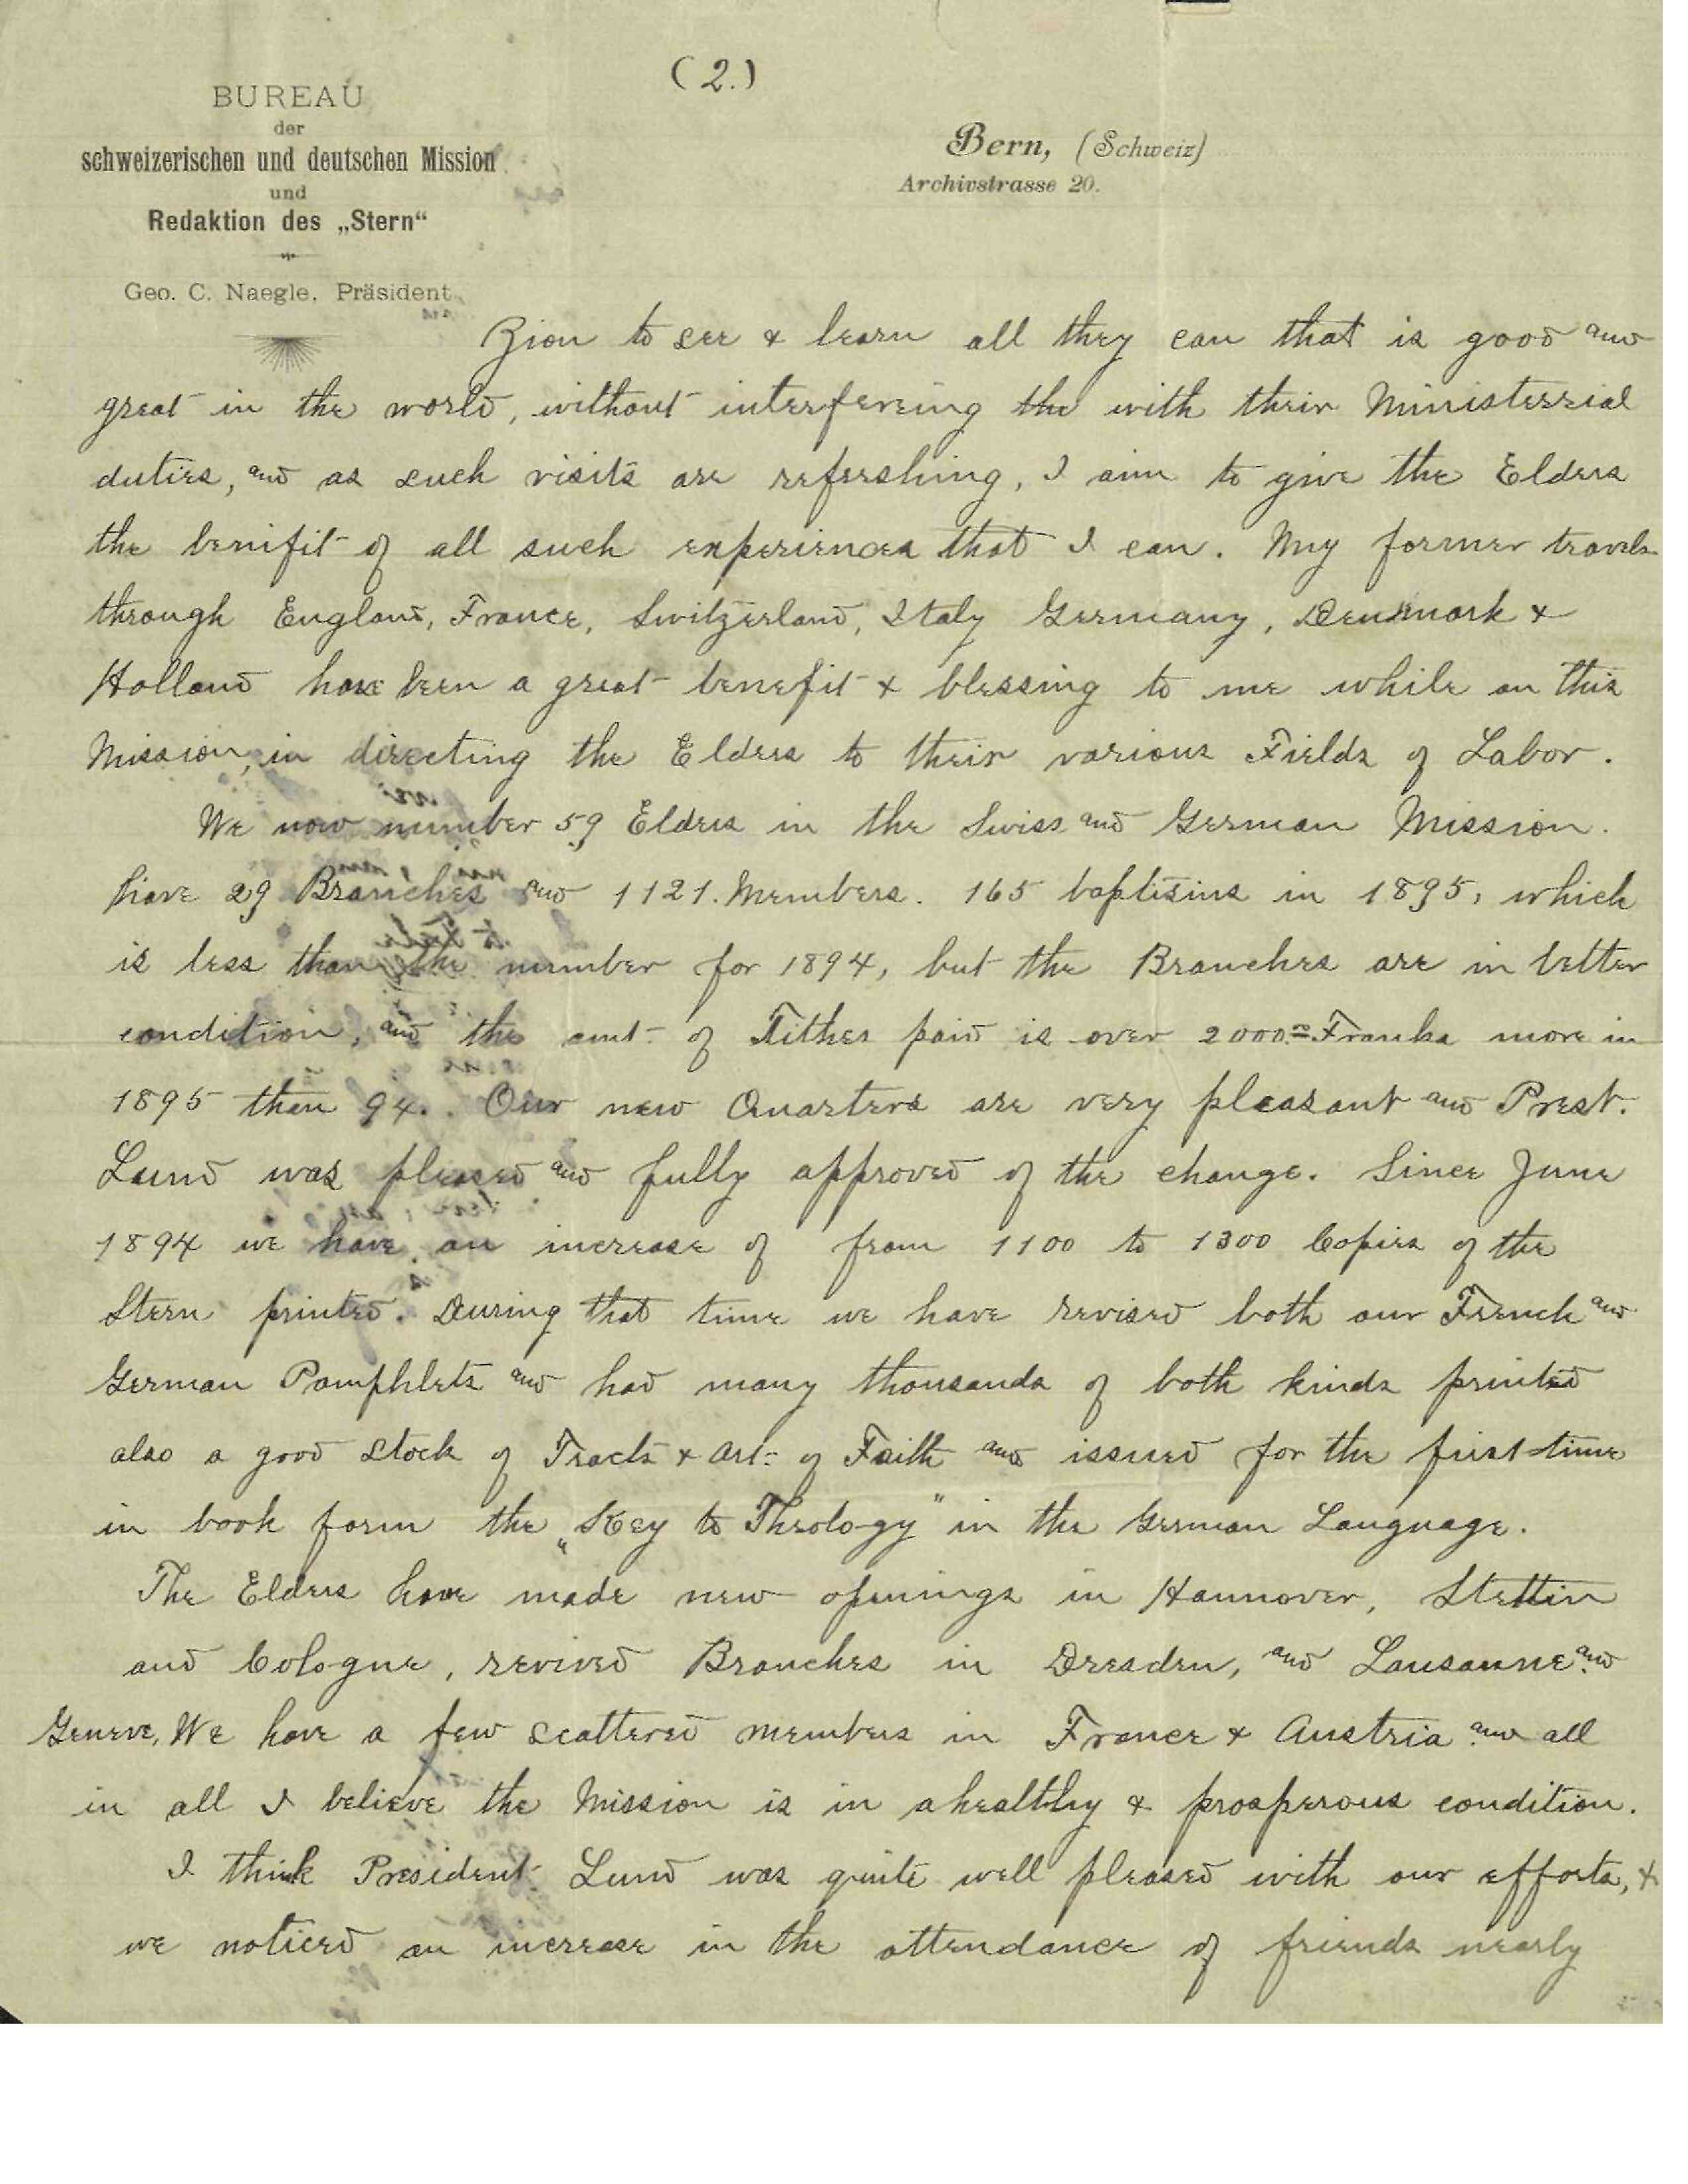 (2.)
BUREAU
der
schweizerischen und deutschen Mission
und
Redaktion des „Stern“
Geo. C. Naegle, Präsident
Bern, (Schweiz)
Archivstrasse 20.
Zion to see & learn all they can that is good and
great in the world, without interfereing the with their Ministerial
duties, and as such visits are refreshing, I aim to give the Elders
the benifit of all such experiences that I can. My former travels
through England, France, Switzerland, Italy Germany, Denmark &
Holland have been a great benefit & blessing to me while on this
Mission, in directing the Elders to their various Fields of Labor.
We now number 59 Elders in the Swiss and German Mission.
have 29 Branches and 1121. Members. 165 baptisms in 1895, which
is less than the number for 1894, but the Branches are in better
condition, and the amt. of Tithes paid is over 2000.00 Franks more in
1895 then 94. Our new Quarters are very pleasant and Prest.
Lund was pleased and fully approved of the change. Since June
1894 we have an increase of from 1100 to 1300 Copies of the
Stern printed. During that time we have revised both our French and
German Pamphlets and had many thousands of both kinds printed
also a good stock of Tracts & Art. of Faith and issued for the first time
in book form the „Key to Theology" in the German Language.
The Elders have made new openings in Hannover, Stettin
and Cologne, revived Branches in Dresden, and Lausanne and
Geneve, We have a few scattered members in France & Austria and all
in all I believe the Mission is in a healthy & prosperous condition.
I think President Lund was quite well pleased with our efforts, &
we noticed an increase in the attendance of friends nearly